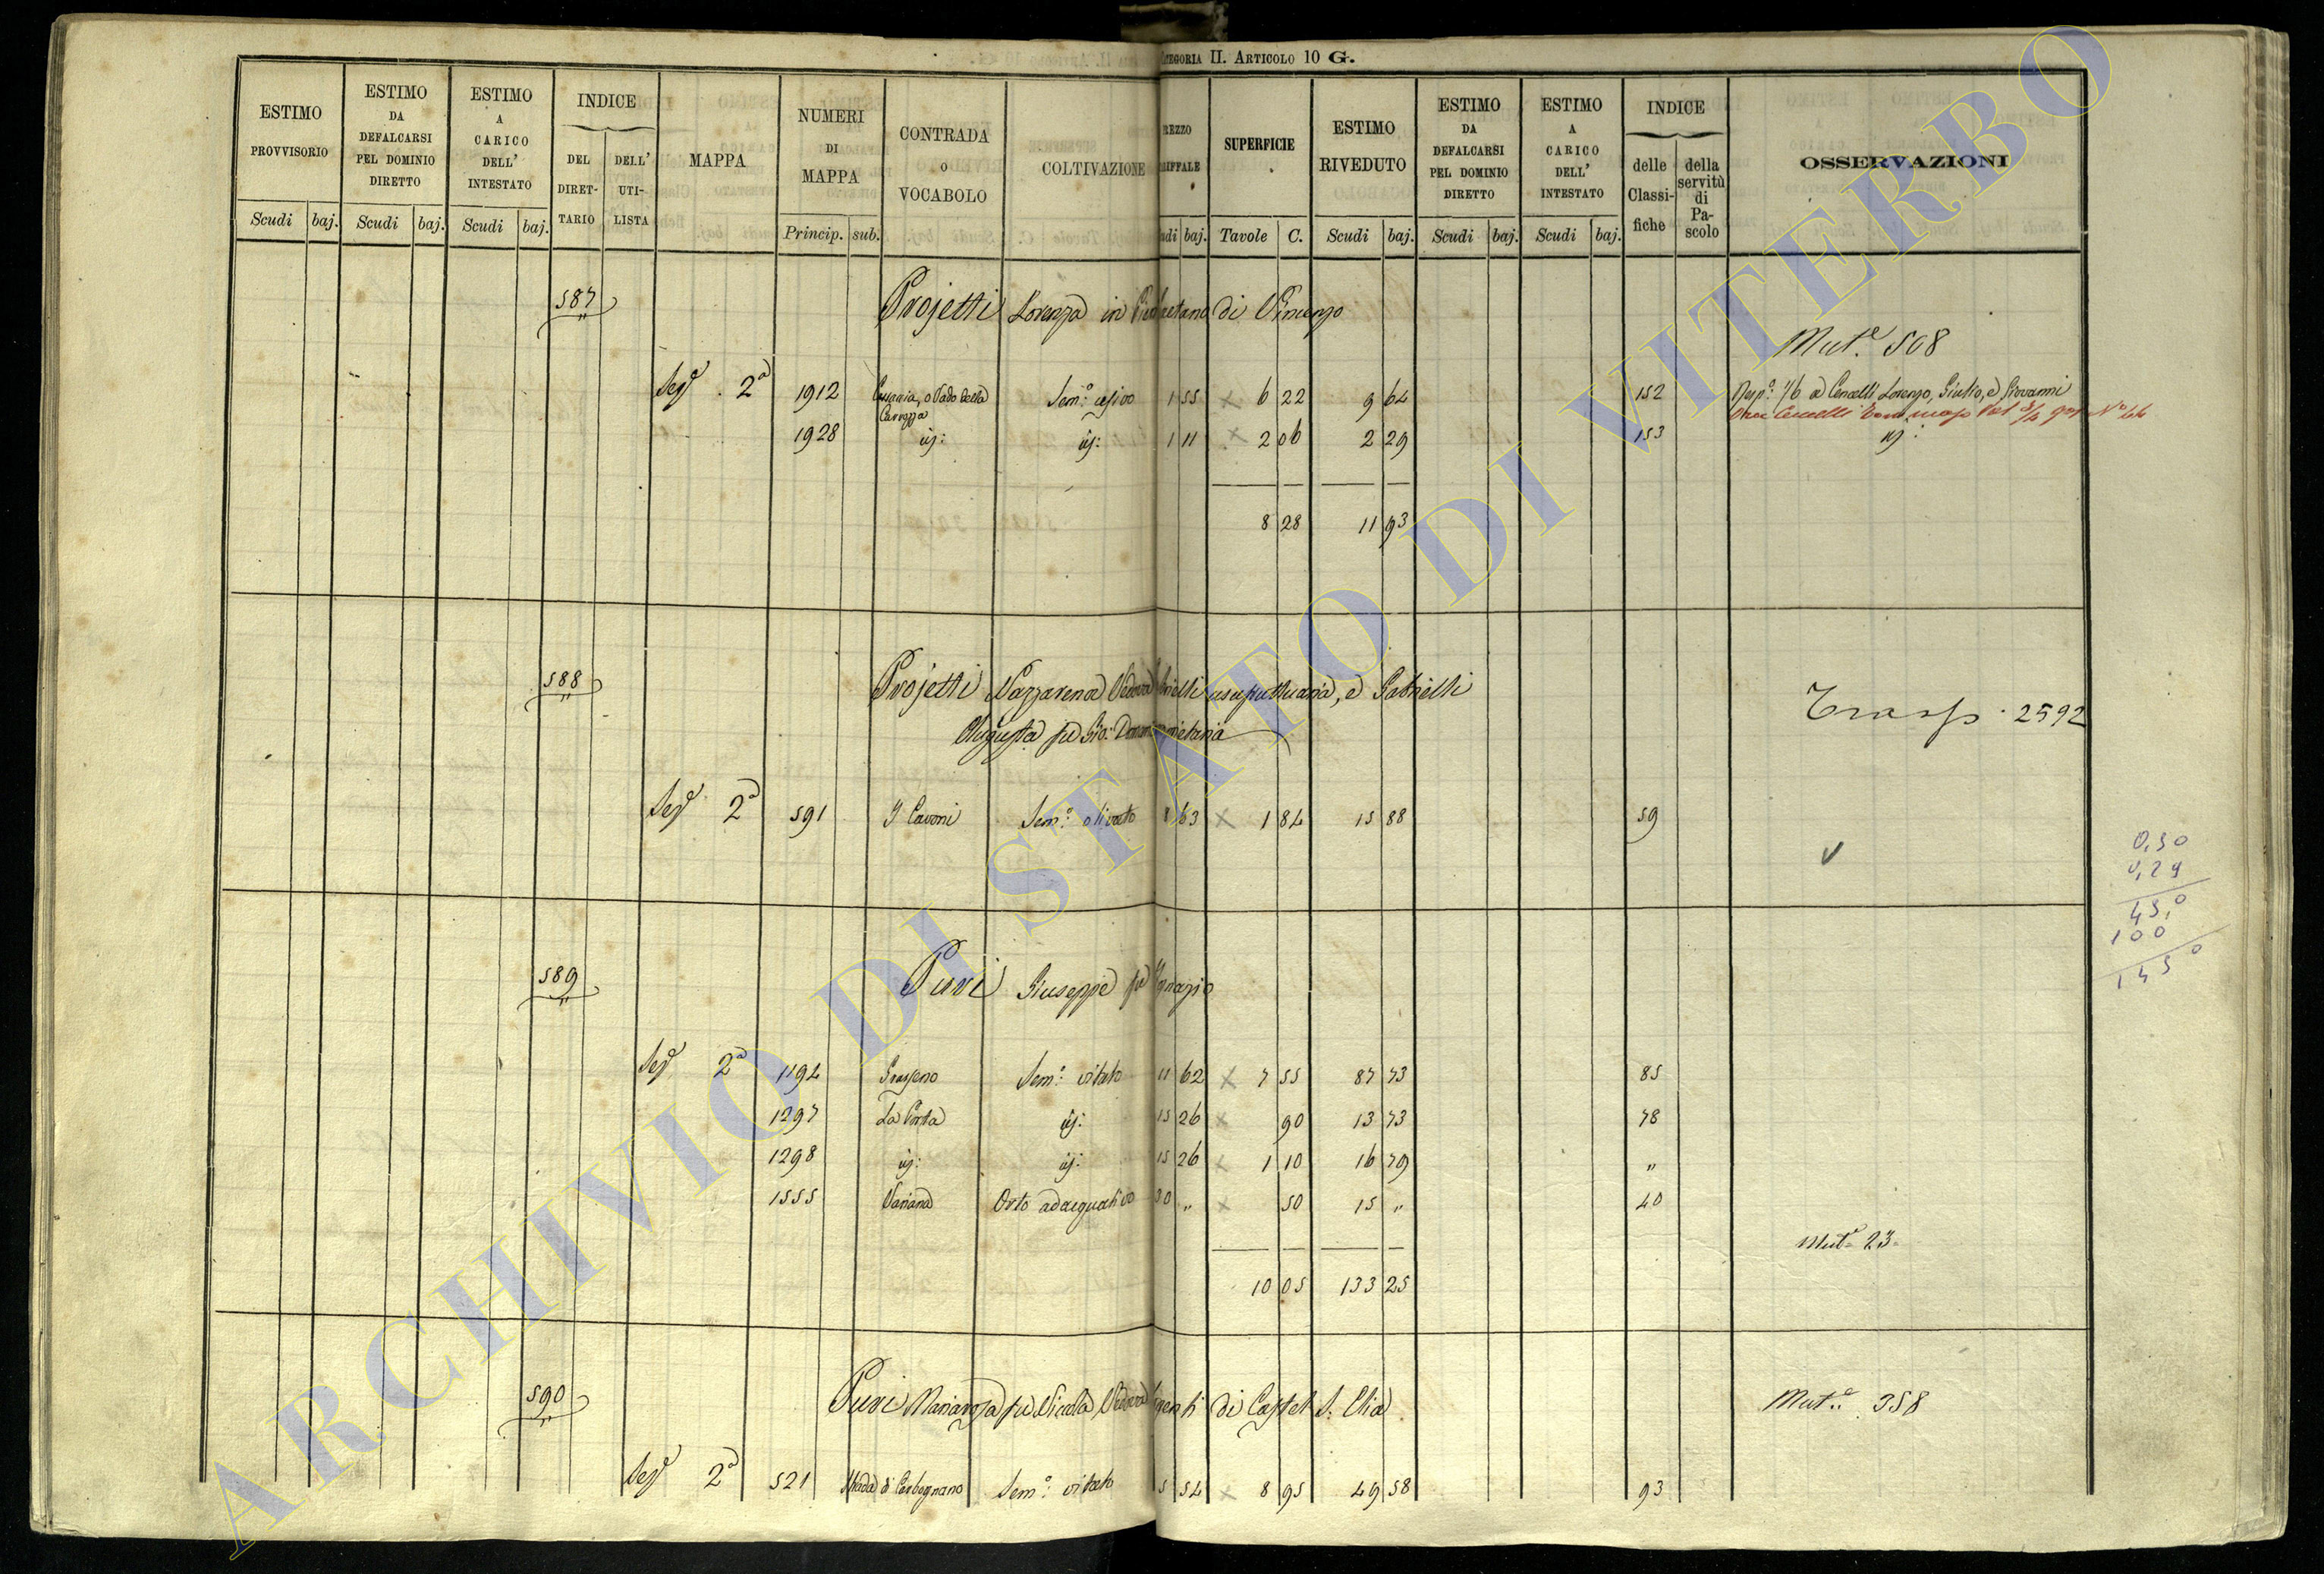 CATEGORIA II. ARTICOLO 10 G.
ESTIMO PROVVISORIO Scudi baj.
ESTIMO DA DEFALCARSI PEL DOMINIO DIRETTO Scudi baj.
ESTIMO A CARICO DELL' INTESTATO Scudi baj.
INDICE DEL DIRETTARIO DELL' UTILISTA
MAPPA
NUMERI DI MAPPA Princip. sub.
CONTRADA o VOCABOLO
COLTIVAZIONE
REZZO RIFFALE udi baj.
SUPERFICIE Tavole C.
ESTIMO RIVEDUTO Scudi baj.
ESTIMO DA DEFALCARSI PEL DOMINIO DIRETTO Scudi baj.
ESTIMO A CARICO DELL' INTESTATO Scudi baj.
INDICE delle Classifiche della servitù di Pascolo
OSSERVAZIONI
587 Projetti Lorenza in etano di Vincenzo
Mut.e 508
Seg.e 2a 1912 o Vado della Carozza Sem.o 1 55 x 6 22 9 64 152 Resp.e 1/6 a Cencelli Lorenzo, Giulio, e Giovanni
N.o 66
1928 id: id: 1 11 x 2 06 2 29 153 id:
8 28 11 93
588 Projetti Nazzarena Vedova usufruttuaria, e Gabrielli
Augusta fu Gio: proprietaria
Trasp. 2592
Seg.e 2a 591 I Cavoni Sem.o olivato 8 63 x 1 84 15 88 59
0,50
0,29
45,0
100
145 0
589 Puri Giuseppe fu Ignazio
Seg.e 2a 1194 Sem.o vitato 11 62 x 7 55 87 73 85
1297 La Porta id: 15 26 x 90 13 73 78
1298 id: id: 15 26 x 1 10 16 79 "
1555 Orto adacquativo 30 " x 50 15 " 40
Mut.e 23
10 05 133 25
590 Puri fu Nicola Vedova di Castel S. Elia
Mut.e 358
Seg.e 2a 521 Strada di Carbognano Sem.o vitato 5 54 x 8 95 49 58 93
ARCHIVIO DI STATO DI VITERBO